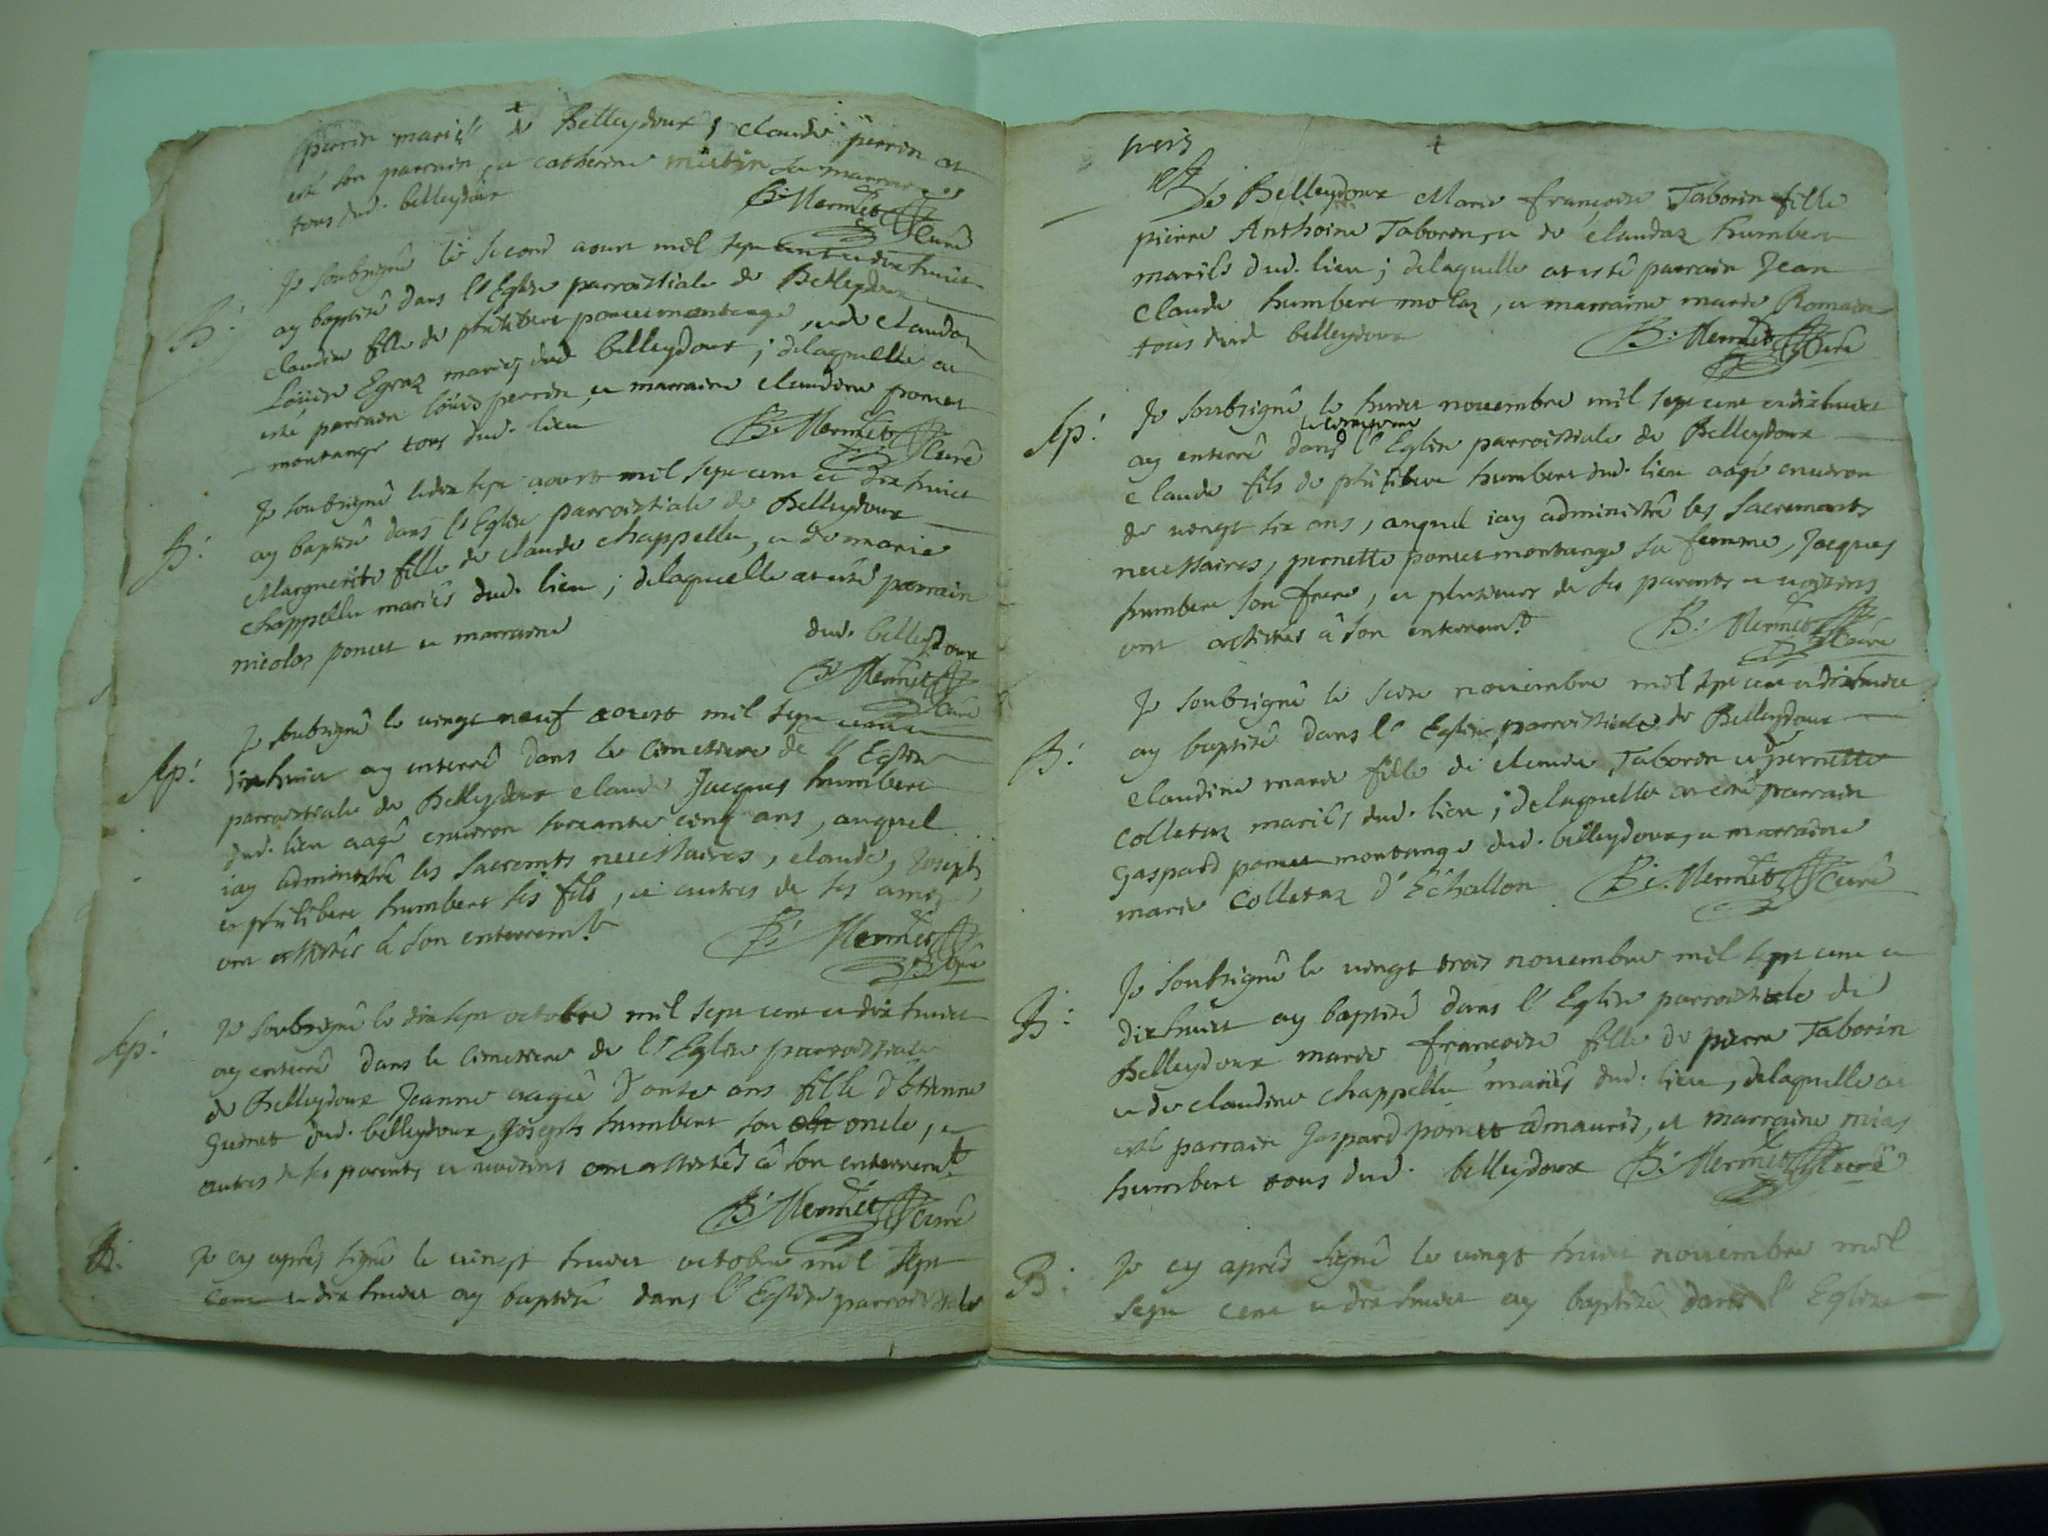 +
perrin mariés de Belleydoux, claude perrin at
esté son parrain, et catherine sa marraine
tous dud. belleydoux
B: Mermet Curé
B:
Je soubsigné le second aoust mil sept cent et dixhuict
ay baptisé dans l'Eglise parroistiale de Belleydoux
claudine fille de philibert poncet montange, et de claudaz
Louise Egraz mariés dud. belleydoux; delaquelle at
esté parrain louis perrin, et marraine claudine poncet
montange tous dud. lieu
B: Mermet Curé
B:
Je soubsigné ledix sept aoust mil sept cent et dix huict
ay baptisé dans l'Eglise parroistiale de Belleydoux
Marguerite fille de claude chappellu, et de marie
chappellu mariés dud. lieu; delaquelle at esté parrain
nicolas poncet et marraine dud. belleydoux
B: Mermet Curé
Sep:
Je soubsigné le vingt neuf aoust mil sept cent et
dixhuict ay enterré dans le Cimetiere de l'Eglise
parroistiale de Belleydoux claude Jacques humbert
dud. lieu aagé environ soixante cinq ans, auquel
iay administré les Sacremts necessaires, claude, Joseph,
et philibert humbert ses fils, et autres de ses amis,
ont assistés à son enterremt
B: Mermet Curé
Sep:
Je soubsigné le dixsept octobre mil sept cent et dix huict
ay enterré dans le Cimetiere de l'Eglise parroistiale
de Belleydoux Jeanne aagée d'onze ans fille d'Estienne
guinet dud. belleydoux, Joseph humbert son oncle, et
autres de ses parents et voisins ont assistés à son enterremt
B: Mermet Curé
B:
Je cy après signé le vingt huict octobre mil sept
cent et dix huict ay baptisé dans l'Eglise parroistiale
+
de Belleydoux Marie françoise Taborin fille
pierre Anthoine Taborin, et de claudaz humbert
mariés dud. lieu; delaquelle at esté parrain Jean
claude humbert molaz, et marraine marie Romain
tous dud belleydoux
B: Mermet Curé
Sep:
Je soubsigné le huict novembre mil sept cent et dixhuict
le cimetiere
ay enterré dans l'Eglise parroistiale de Belleydoux
claude fils de philibert humbert dud. lieu aagé environ
de vingt six ans, auquel iay administré les Sacrements
necessaires, pernette poncet montange sa femme, Jacques
humbert son frere, et plusieurs de ses parents et voisins
ont assistés à son enterremt
B: Mermet Curé
B:
Je soubsigné le seize novembre mil sept cent et dixhuict
ay baptisé dans l'Eglise parroistiale de Belleydoux
claudine marie fille de claude Taborin et de pernette
Colletaz mariés dud. lieu; delaquelle at esté parrain
gaspard poncet montange dud. belleydoux, et marraine
marie Colletaz d'Echallon B: Mermet Curé
B:
Je soubsigné le vingt trois novembre mil sept cent et
dixhuict ay baptisé dans l'Eglise parroistiale de
Belleydoux marie françoise fille de pierre Taborin
et de claudine chappellu mariés dud. lieu, delaquelle at
esté parrain gaspard poncet admauris, et marraine
humbert tous dud. belleydoux B: Mermet Curé
B:
Je cy après signé le vingt huict novembre mil
sept cent et dixhuict ay baptisé dans l'Eglise